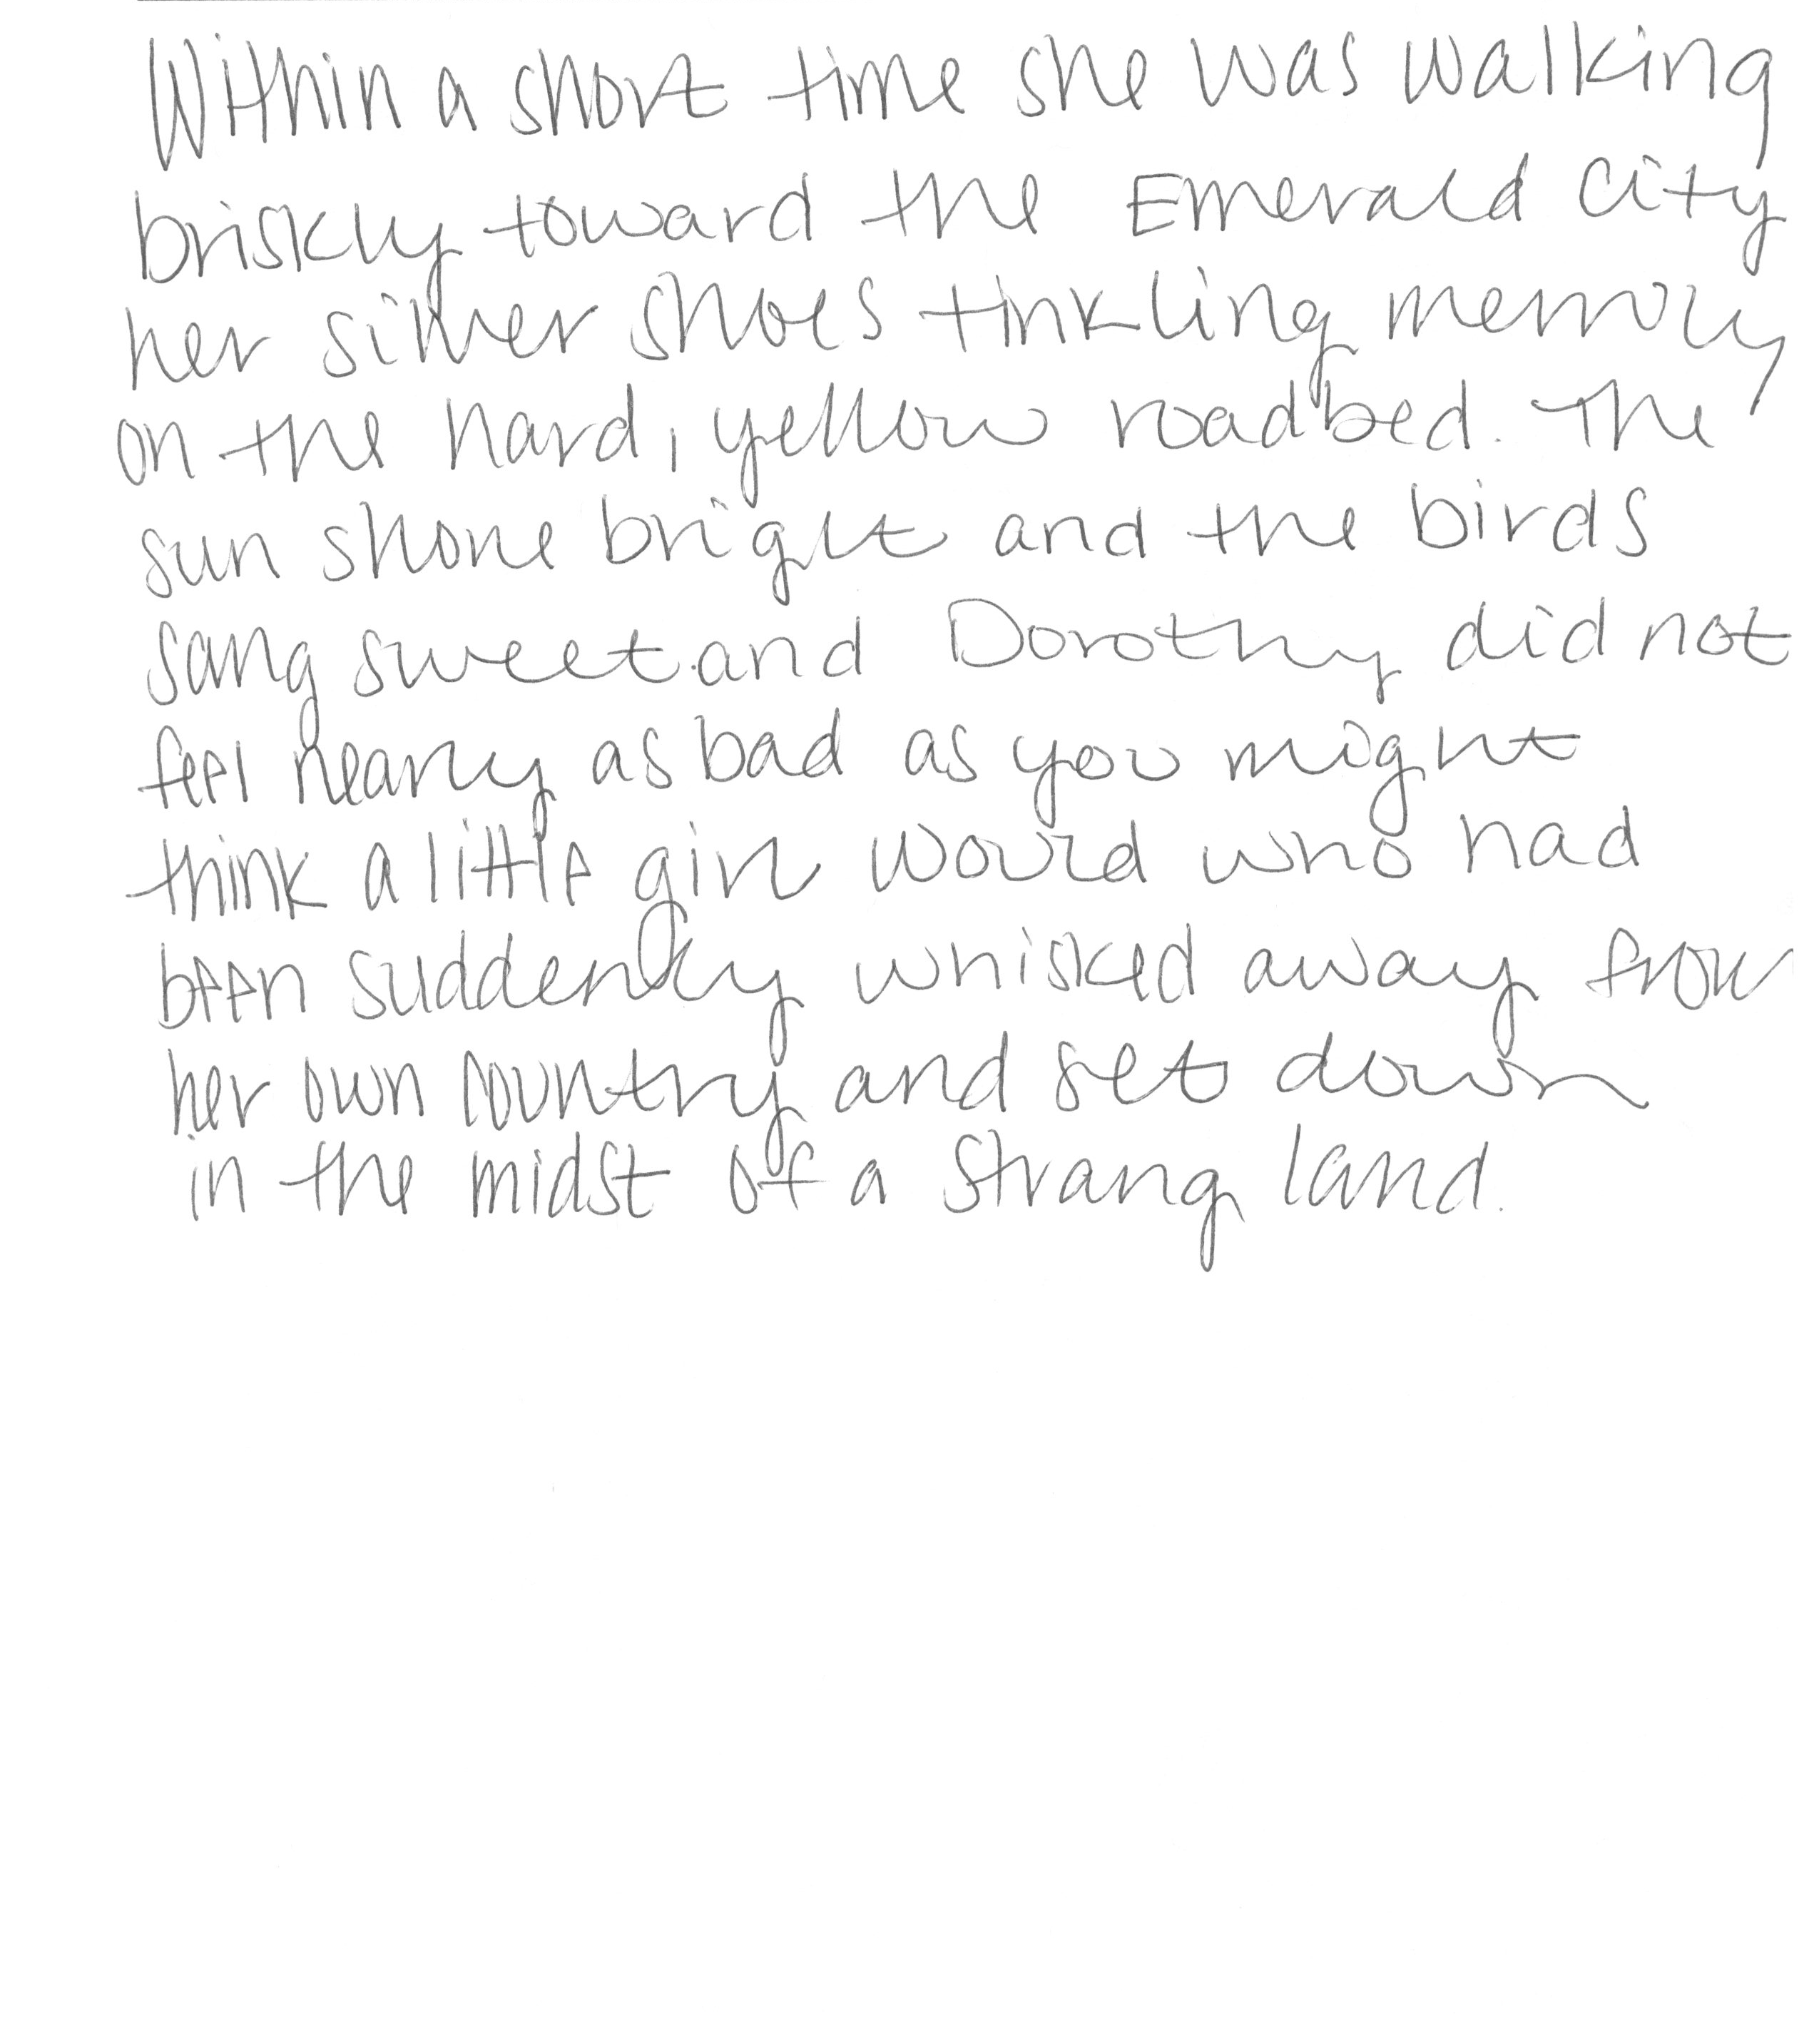 Within a short time she was walking
briskly toward the Emerald City
her silver shoes tinkling merrily
on the hard, yellow roadbed. The
sun shone bright and the birds
sang sweet and Dorothy did not
feel nearly as bad as you might
think a little girl would who had
been suddenly whisked away from
her own country and set down
in the midst of a strang land.